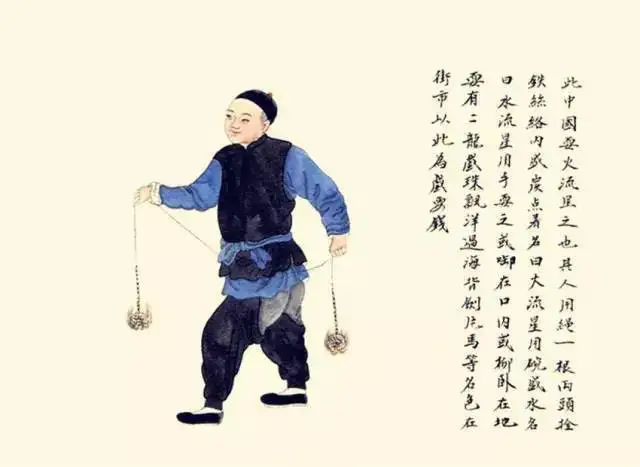 此中國耍火流星之也其人用繩一根両頭拴
鉄絲絡内盛炭点着名曰大流星用碗盛水名
曰水流星用手耍之或啣在口内或柳卧在地
耍有二龍戲珠觀洋過海背劍片馬等名色在
街市以此為戲耍錢